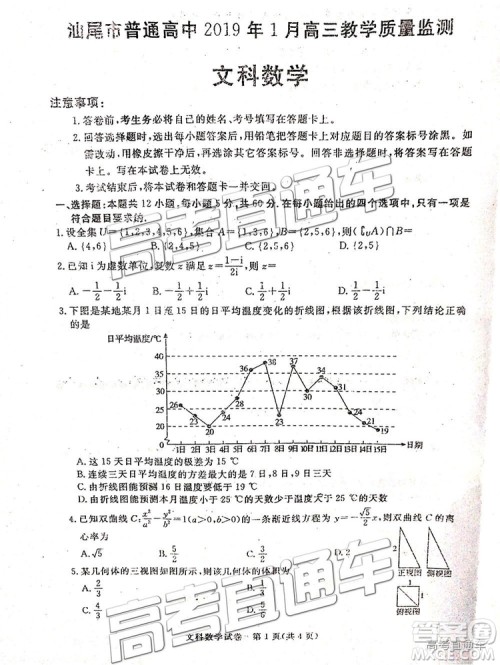 汕尾市普通高中 2019 年 1 月高三教学质量监测
文科数学
注意事项：
1.答卷前，考生务必将自己的姓名、考号填写在答题卡上。
2.回答选择题时，选出每小题答案后，用铅笔把答题卡上对应题目的答案标号涂黑。如
需改动，用橡皮擦干净后，再选涂其它答案标号。回答非选择题时，将答案写在答题
卡上。写在本试卷上无效。
3.考试结束后，将本试卷和答题卡一并交回。
一、选择题：本题共 12 小题，每小题 5 分，共 60 分。在每小题给出的四个选项中，只有一项是
符合题目要求的。
1.设全集U={1,2,3,4,5,6}，集合A={1,3,5}，B={2,5,6}，则(∁UA)∩B=
A.{4,6} B.{2,6} C.{2,5,6} D.{2,5}
2.已知 i 为虚数单位，复数 z 满足 z=(1-i)/2i，则 z=
A.-1/2-1/2i B.-1/2+1/2i C.1/2-1/2i D.1/2+1/2i
3.下图是某地某月 1 日至 15 日的日平均温度变化的折线图，根据该折线图，下列结论正确
的是
日平均温度/℃
40
36
32
28
24
20
16
26 20 24 36 38 23 37 34 31 24 19
0 1日2日3日4日5日6日7日8日9日10日11日12日13日14日15日 日期
A.这 15 天日平均温度的极差为 15 ℃
B.连续三天日平均温度的方差最大的是 7 日，8 日，9 日三天
C.由折线图能预测 16 日温度要低于 19 ℃
D.由折线图能预测本月温度小于 25 ℃的天数少于温度大于 25 ℃的天数
4.已知双曲线 C:x²/a²-y²/b²=1(a>0,b>0)的一条渐近线方程为 y=-√5/2x，则双曲线 C 的离
心率为
A.√5 B.5/2 C.3/2 D.2/3
5.某几何体的三视图如图所示，则该几何体的体积为
A.2/3 B.1/3
C.4/3 D.1/6
正视图 侧视图
俯视图
文科数学试卷 第 1 页(共 4 页)
高考直通车
高考直通车
高考直通车